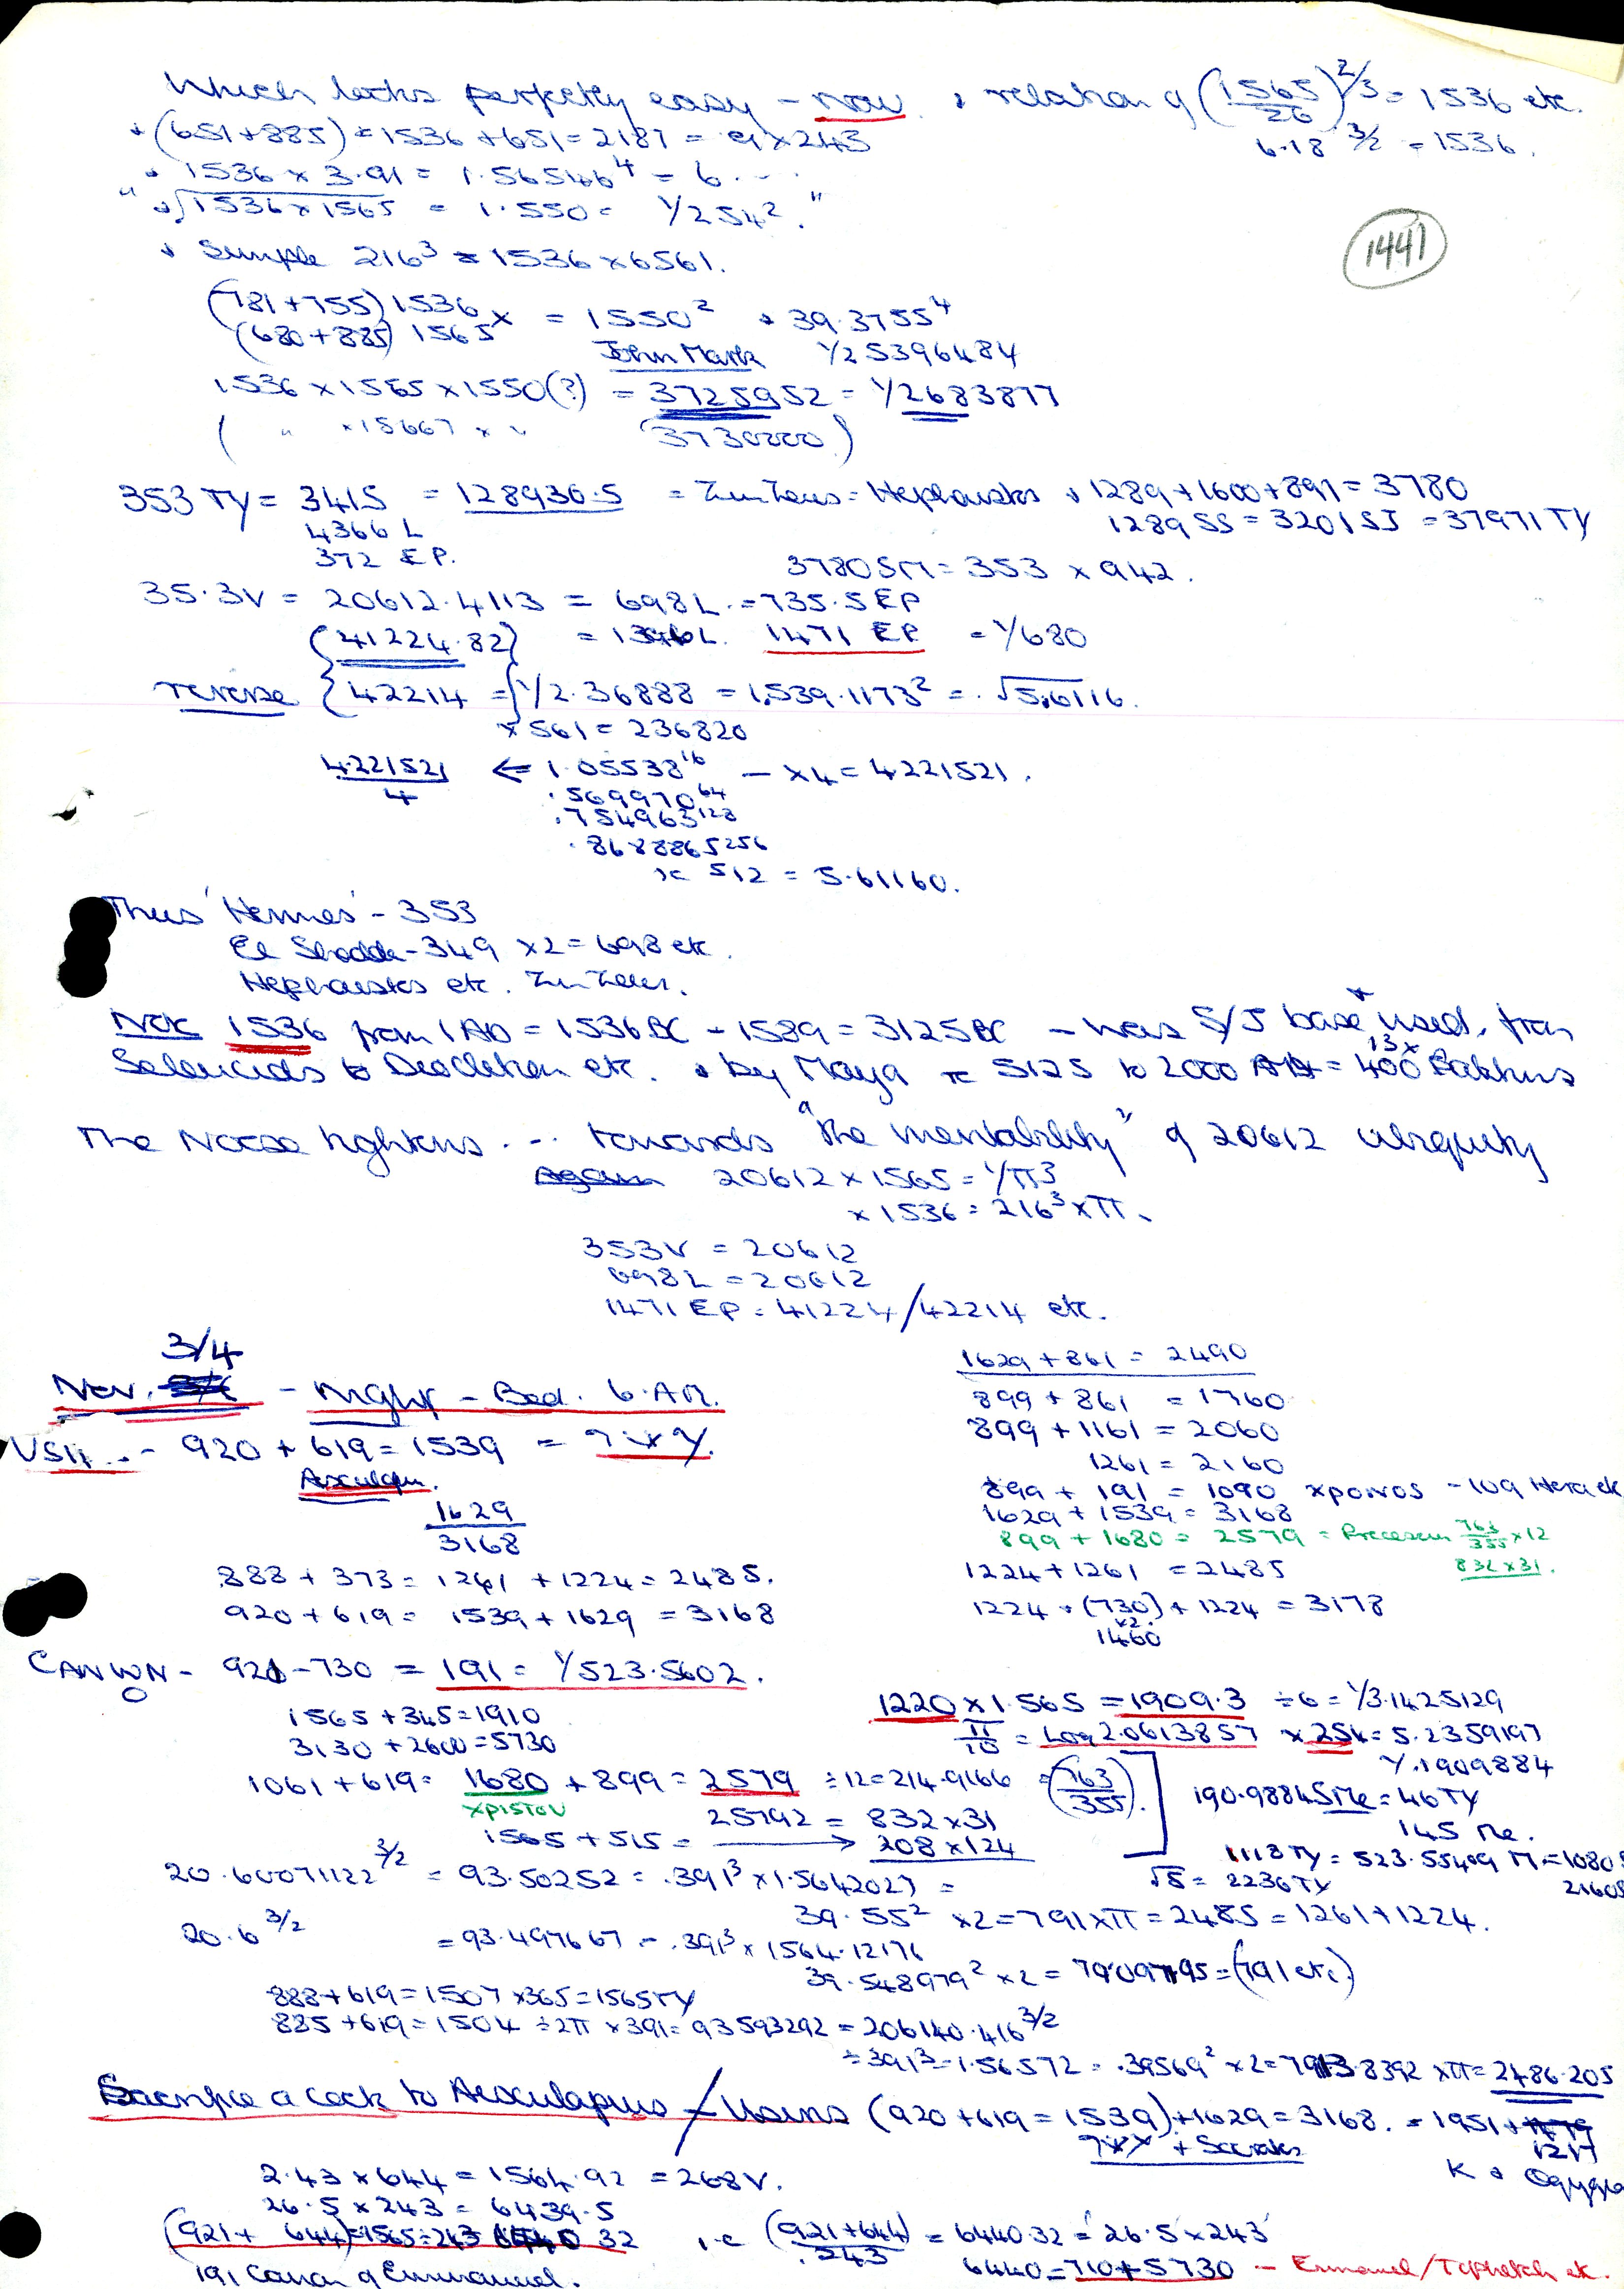 Which looks perfectly easy - now. & relation of (1565/26)^2/3 = 1536 etc.
6.18 ^3/2 = 1536.
& (651+885) = 1536 + 651 = 2187 = 9 x 243
& 1536 x 3.91 = 1.56546^4 = 6 ...
" & √1536 x 1565 = 1.550 = 1/254^2."
1441
& Simple 216^3 = 1536 x 6561.
(781+755) 1536 x = 1550^2 & 39.3755^4
(680+885) 1565
John Mark 1/25396484
1536 x 1565 x 1550(?) = 3725952 = 1/2683877
( " x 15667 x " (3730000)
353 TY = 341S = 128936.5 = = Hephaistos & 1289+1600+891 = 3780
4366 L 1289 SS = 3201 SJ = 37971 TY
372 EP. 3780 SM = 353 x 942.
35.3V = 20612.4113 = 698L. = 735.5 EP
(41224.82) = 1396L. 1471 EP = 1/680
reverse { 42214 = 1/2.36888 = 1.539.1173^2 = .√5.6116.
x 561 = 236820
4221521/4 ← 1.05538^16 - x4 = 4221521.
.569970^64
.754963^128
.8688865^256
x 512 = 5.61160.
Thus 'Hermes' - 353
El Shaddai - 349 x2 = 698 etc.
Hephaistos etc.
Note 1536 from 1 AD = 1536 BC - 1589 = 3125 BC - was S/J base used, from
Seleucids to Diocletian etc. & by Maya = 5125 to 2000 AD = 13 x 400 Baktuns
The Noose tightens ... towards "the mentability" of 20612 ubiquity
Again 20612 x 1565 = 1/π^3
x 1536 = 216^3 x π.
353V = 20612
698L = 20612
1471 EP = 41224/42214 etc.
3/4
Nov. - Night - Bed. 6.AM.
- 920 + 619 = 1539 =
Aesculap.
1629
3168
888 + 373 = 1261 + 1224 = 2485.
920 + 619 = 1539 + 1629 = 3168
1629 + 861 = 2490
899 + 861 = 1760
899 + 1161 = 2060
1261 = 2160
899 + 191 = 1090 χρονος - 109 Hera etc
1629 + 1539 = 3168
899 + 1680 = 2579 = Precession 763/355 x 12
832 x 31.
1224 + 1261 = 2485
1224 + (730) + 1224 = 3178
x2.
1460
CANωN - 921 - 730 = 191 = 1/523.5602.
1565 + 345 = 1910
3130 + 2600 = 5730
1220 x 1.565 = 1909.3 ÷ 6 = 1/3.1425129
π/10 = Log 2.0613857 x 254 = 5.2359197
1/.1909884
1061 + 619 = 1680 + 899 = 2579 ÷ 12 = 214.9166 = (763/355).
χριστου 25792 = 832 x 31
1565 + 515 = → 208 x 124
190.9884 SMe = 46 TY
145 Me.
1118 TY = 523.55409 M = 1080 S
√5 = 2236 TY 2160S
20.60071122^3/2 = 93.50252 = .391^3 x 1.5642027 =
39.55^2 x2 = 791 x π = 2485 = 1261 + 1224.
20.6^3/2 = 93.497667 = .391^3 x 1564.12176
39.548979^2 x 2 = = (791 etc)
888 + 619 = 1507 x 365 = 1565 TY
885 + 619 = 1504 ÷ 2π x 391 = 93593292 = 206140.416^3/2
÷ 391^3 = 1.56572 = .39569^2 x 2 = x π = 2486.205
Sacrifice a cock to Aesculapius / - (920 + 619 = 1539) + 1629 = 3168. = 1951 +
1217
+ Socrates K & Ogygia
2.43 x 644 = 1564.92 = 268V.
26.5 x 243 = 6439.5
(921 + 644) = 1565 ÷ 243 32 i.e (921+644)/.243 = 6440.32 = 26.5 x 243
191 Canon of Emmanuel. 6440 = 710 + 5730 - Emmanuel/ etc.